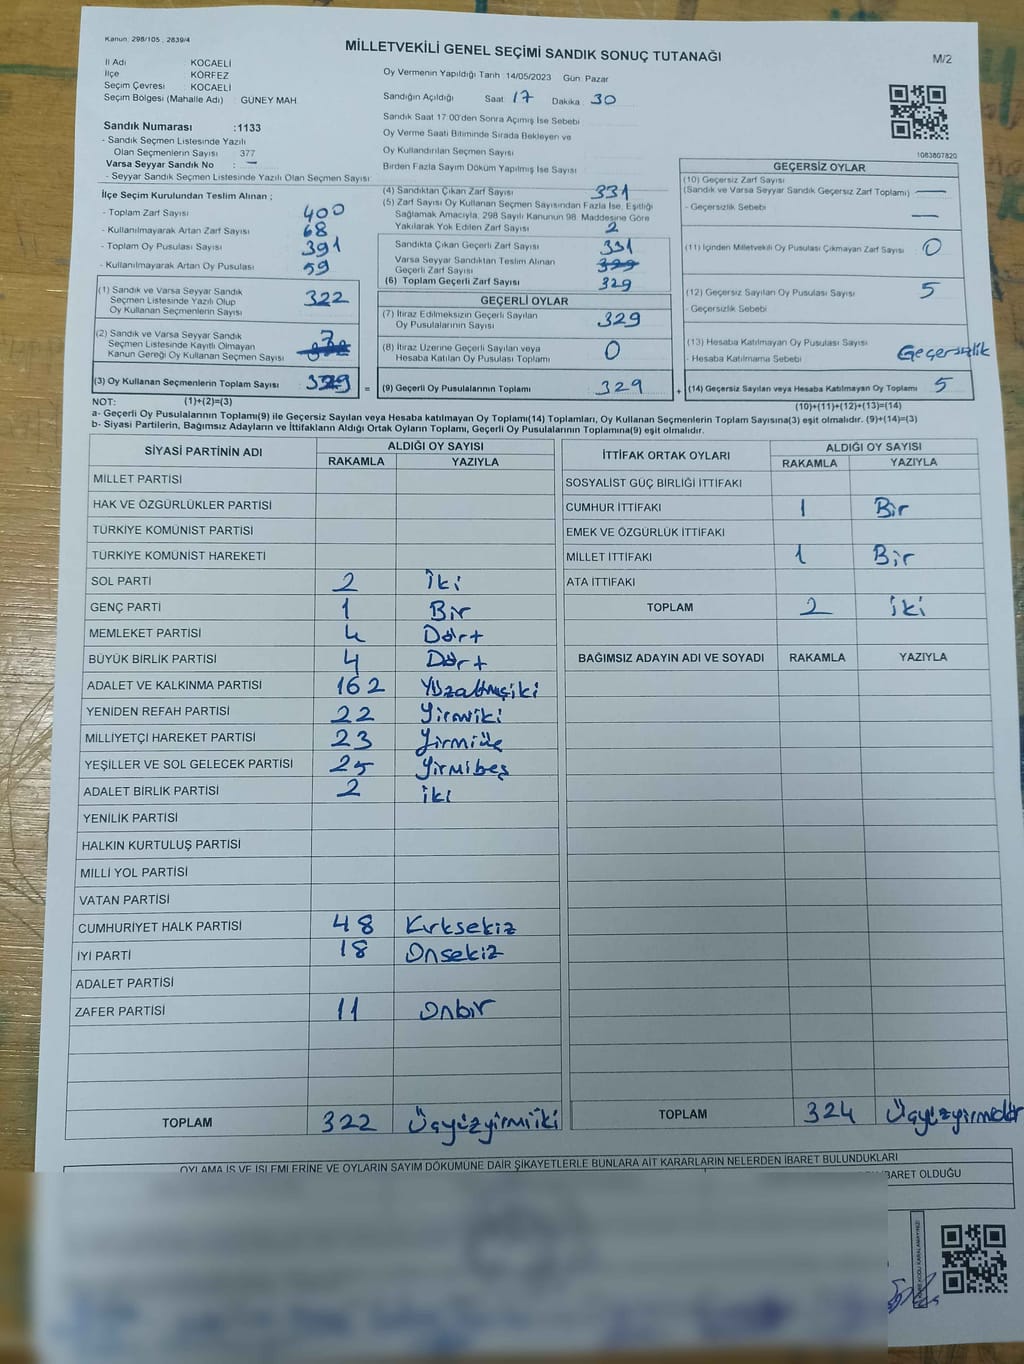 Kanun: 298/105, 2839/4
MİLLETVEKİLİ GENEL SEÇİMİ SANDIK SONUÇ TUTANAĞI
M/2
İl Adı : KOCAELİ
İlçe : KÖRFEZ
Seçim Çevresi : KOCAELİ
Seçim Bölgesi (Mahalle Adı) : GÜNEY MAH
Sandık Numarası :1133
- Sandık Seçmen Listesinde Yazılı
Olan Seçmenlerin Sayısı : 377
Varsa Seyyar Sandık No : —
- Seyyar Sandık Seçmen Listesinde Yazılı Olan Seçmen Sayısı:
Oy Vermenin Yapıldığı Tarih :14/05/2023 Gün: Pazar
Sandığın Açıldığı Saat: 17 Dakika: 30
Sandık Saat 17:00'den Sonra Açımış İse Sebebi
Oy Verme Saati Bitiminde Sırada Bekleyen ve
Oy Kullandırılan Seçmen Sayısı
Birden Fazla Sayım Döküm Yapılmış İse Sayısı
1083807820
İlçe Seçim Kurulundan Teslim Alınan ;
- Toplam Zarf Sayısı : 400
- Kullanılmayarak Artan Zarf Sayısı : 68
- Toplam Oy Pusulası Sayısı : 391
- Kullanılmayarak Artan Oy Pusulası : 59
(1) Sandık ve Varsa Seyyar Sandık
Seçmen Listesinde Yazılı Olup
Oy Kullanan Seçmenlerin Sayısı : 322
(2) Sandık ve Varsa Seyyar Sandık
Seçmen Listesinde Kayıtlı Olmayan
Kanun Gereği Oy Kullanan Seçmen Sayısı : 7
(3) Oy Kullanan Seçmenlerin Toplam Sayısı : 329 =
(4) Sandıktan Çıkan Zarf Sayısı : 331
(5) Zarf Sayısı Oy Kullanan Seçmen Sayısından Fazla İse, Eşitliği
Sağlamak Amacıyla, 298 Sayılı Kanunun 98. Maddesine Göre
Yakılarak Yok Edilen Zarf Sayısı : 2
Sandıkta Çıkan Geçerli Zarf Sayısı : 331
Varsa Seyyar Sandıktan Teslim Alınan
Geçerli Zarf Sayısı : 329
(6) Toplam Geçerli Zarf Sayısı : 329
GEÇERLİ OYLAR
(7) İtiraz Edilmeksizin Geçerli Sayılan
Oy Pusulalarının Sayısı : 329
(8) İtiraz Üzerine Geçerli Sayılan veya
Hesaba Katılan Oy Pusulası Toplamı : 0
(9) Geçerli Oy Pusulalarının Toplamı : 329 +
GEÇERSİZ OYLAR
(10) Geçersiz Zarf Sayısı
(Sandık ve Varsa Seyyar Sandık Geçersiz Zarf Toplamı) : —
- Geçersizlik Sebebi : —
(11) İçinden Milletvekili Oy Pusulası Çıkmayan Zarf Sayısı : 0
(12) Geçersiz Sayılan Oy Pusulası Sayısı : 5
- Geçersizlik Sebebi :
(13) Hesaba Katılmayan Oy Pusulası Sayısı :
- Hesaba Katılmama Sebebi : Geçersizlik
(14) Geçersiz Sayılan veya Hesaba Katılmayan Oy Toplamı : 5
NOT: (1)+(2)=(3)
(10)+(11)+(12)+(13)=(14)
a- Geçerli Oy Pusulasının Toplamı(9) ile Geçersiz Sayılan veya Hesaba katılmayan Oy Toplamı(14) Toplamları, Oy Kullanan Seçmenlerin Toplam Sayısına(3) eşit olmalıdır. (9)+(14)=(3)
b- Siyasi Partilerin, Bağımsız Adayların ve İttifakların Aldığı Ortak Oyların Toplamı, Geçerli Oy Pusulalarının Toplamına(9) eşit olmalıdır.
SİYASİ PARTİNİN ADI
ALDIĞI OY SAYISI
RAKAMLA YAZIYLA
MİLLET PARTİSİ
HAK VE ÖZGÜRLÜKLER PARTİSİ
TÜRKİYE KOMÜNİST PARTİSİ
TÜRKİYE KOMÜNİST HAREKETİ
SOL PARTİ 2 İki
GENÇ PARTİ 1 Bir
MEMLEKET PARTİSİ 4 Dört
BÜYÜK BİRLİK PARTİSİ 4 Dört
ADALET VE KALKINMA PARTİSİ 162 Yüzaltmışiki
YENİDEN REFAH PARTİSİ 22 Yirmiiki
MİLLİYETÇİ HAREKET PARTİSİ 23 Yirmiüç
YEŞİLLER VE SOL GELECEK PARTİSİ 25 Yirmibeş
ADALET BİRLİK PARTİSİ 2 iki
YENİLİK PARTİSİ
HALKIN KURTULUŞ PARTİSİ
MİLLİ YOL PARTİSİ
VATAN PARTİSİ
CUMHURİYET HALK PARTİSİ 48 Kırksekiz
İYİ PARTİ 18 Onsekiz
ADALET PARTİSİ
ZAFER PARTİSİ 11 Onbir
TOPLAM 322 Üçyüzyirmiiki
İTTİFAK ORTAK OYLARI
ALDIĞI OY SAYISI
RAKAMLA YAZIYLA
SOSYALİST GÜÇ BİRLİĞİ İTTİFAKI
CUMHUR İTTİFAKI 1 Bir
EMEK VE ÖZGÜRLÜK İTTİFAKI
MİLLET İTTİFAKI 1 Bir
ATA İTTİFAKI
TOPLAM 2 iki
BAĞIMSIZ ADAYIN ADI VE SOYADI RAKAMLA YAZIYLA
TOPLAM 324 Üçyüzyirmidör
OYLAMA İŞ VE İŞLEMLERİNE VE OYLARIN SAYIM DÖKÜMÜNE DAİR ŞİKAYETLERLE BUNLARA AİT KARARLARIN NELERDEN İBARET BULUNDUKLARI
BARET OLDUĞU